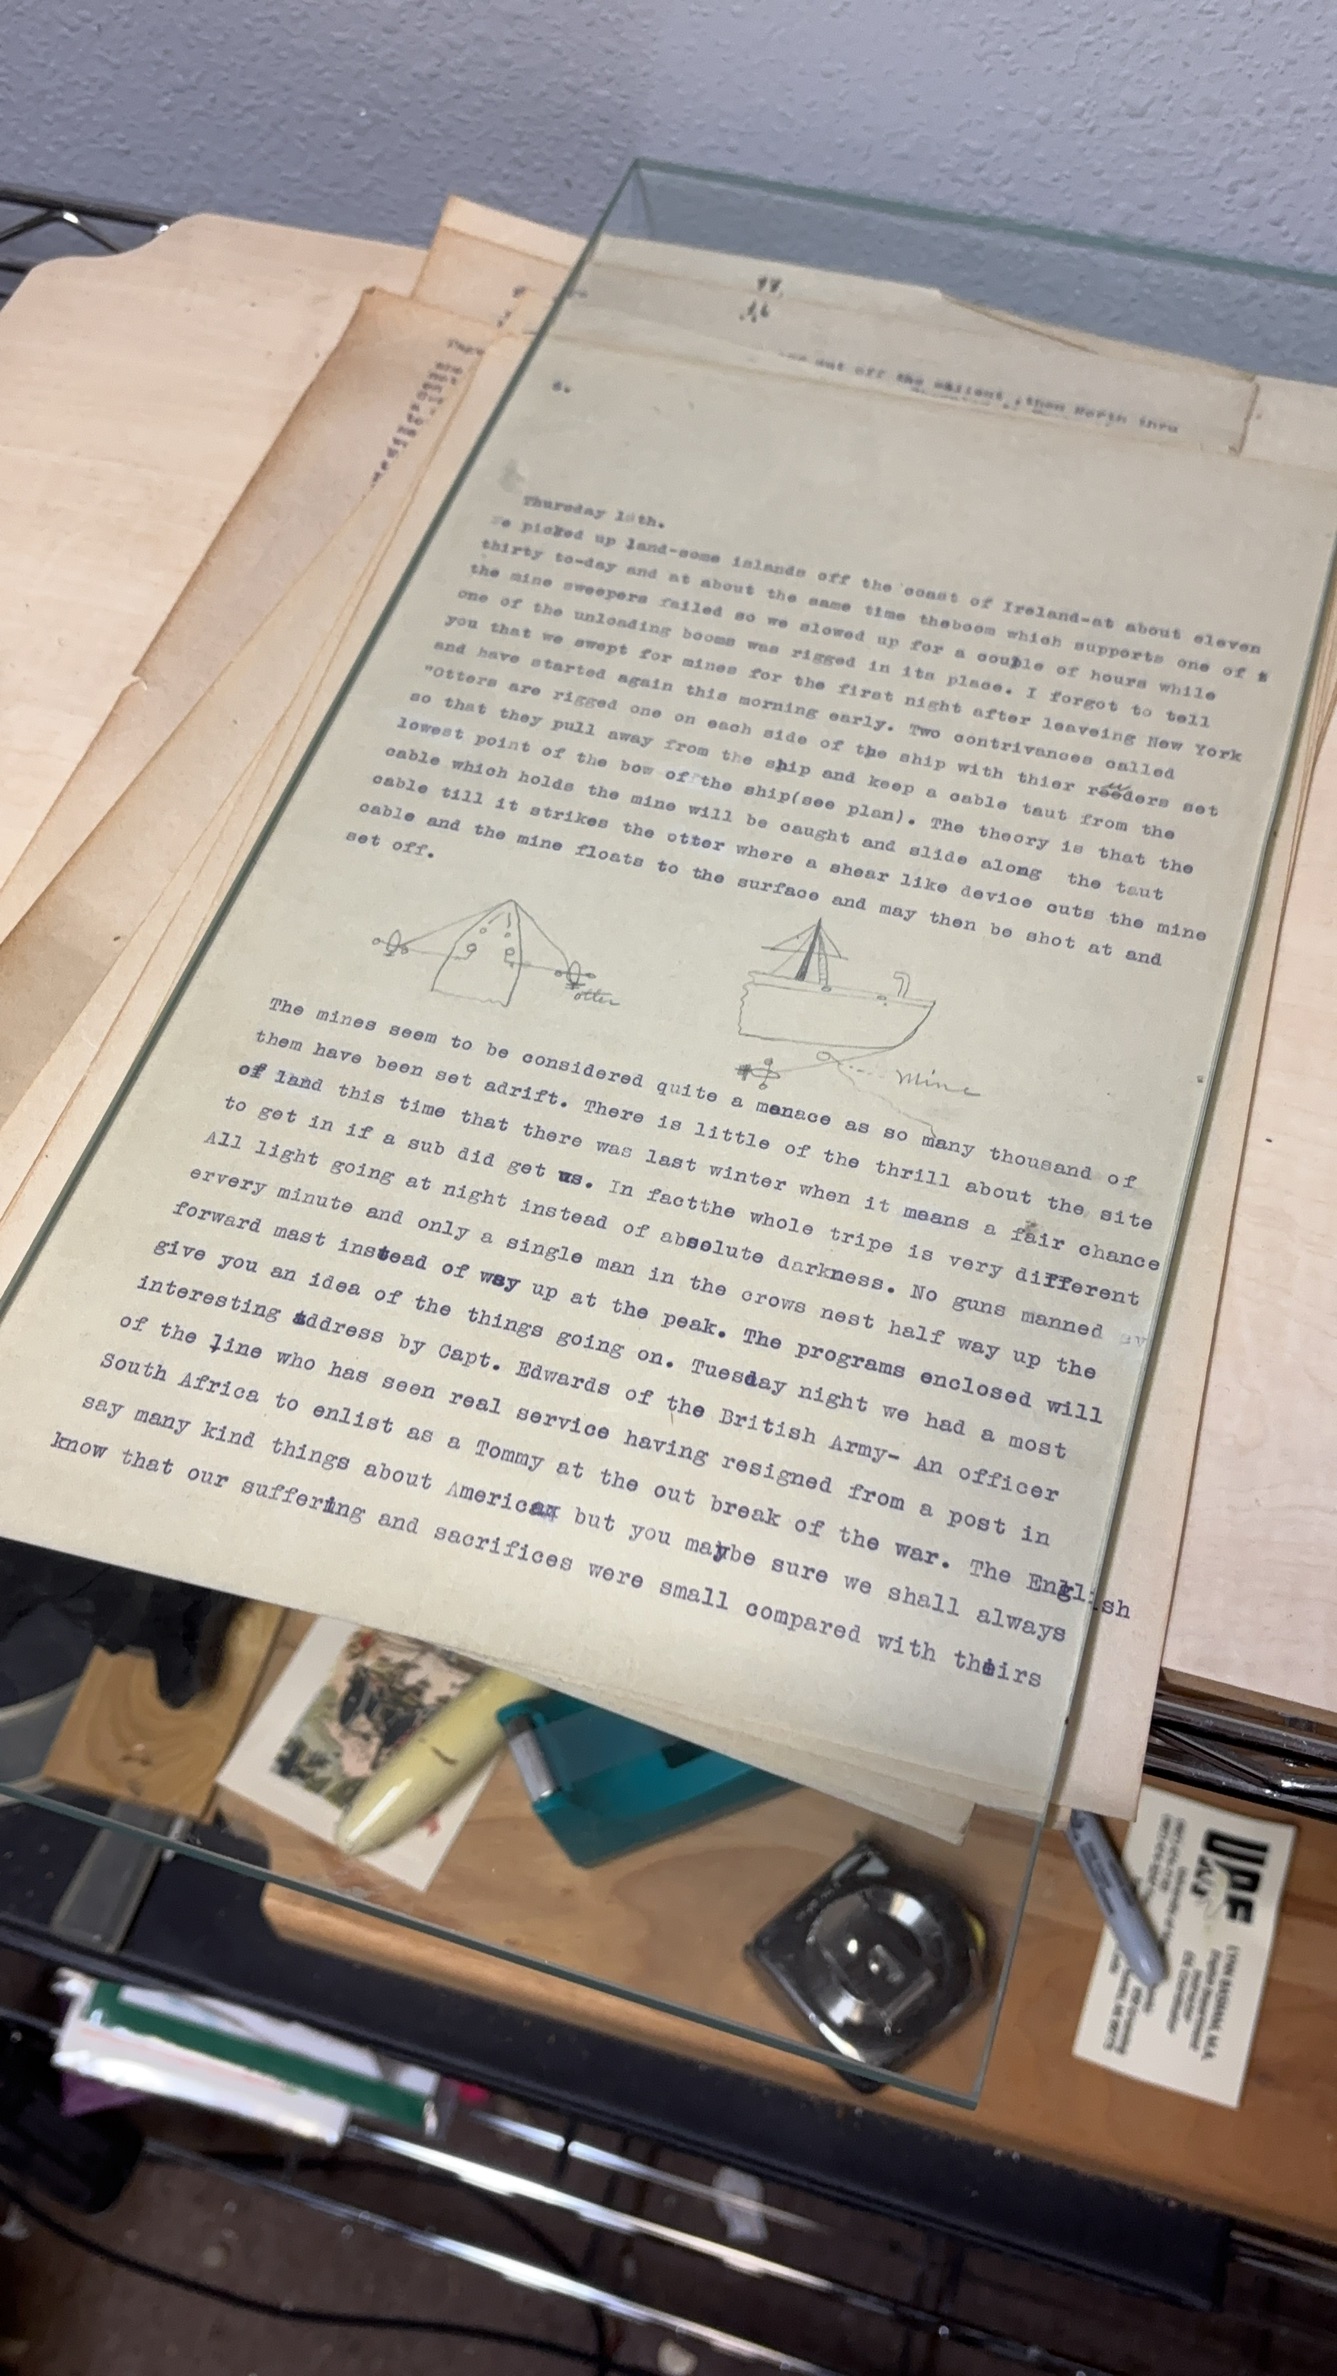 out off the salient ,then North thru
s.
Thursday 18th.
We picked up land-some islands off the coast of Ireland-at about eleven
thirty to-day and at about the same time theboom which supports one of
the mine sweepers failed so we slowed up for a couple of hours while
one of the unloading booms was rigged in its place. I forgot to tell
you that we swept for mines for the first night after leaveing New York
and have started again this morning early. Two contrivances called
"Otters are rigged one on each side of the ship with thier reeders set
so that they pull away from the ship and keep a cable taut from the
lowest point of the bow of the ship(see plan). The theory is that the
cable which holds the mine will be caught and slide along the taut
cable till it strikes the otter where a shear like device cuts the mine
cable and the mine floats to the surface and may then be shot at and
set off.
otter
Mine
The mines seem to be considered quite a menace as so many thousand of
them have been set adrift. There is little of the thrill about the site
of land this time that there was last winter when it means a fair chance
to get in if a sub did get us. In factthe whole tripe is very different
All light going at night instead of absolute darkness. No guns manned
ervery minute and only a single man in the crows nest half way up the
forward mast instead of way up at the peak. The programs enclosed will
give you an idea of the things going on. Tuesday night we had a most
interesting address by Capt. Edwards of the British Army- An officer
of the line who has seen real service having resigned from a post in
South Africa to enlist as a Tommy at the out break of the war. The English
say many kind things about American but you maybe sure we shall always
know that our suffering and sacrifices were small compared with theirs